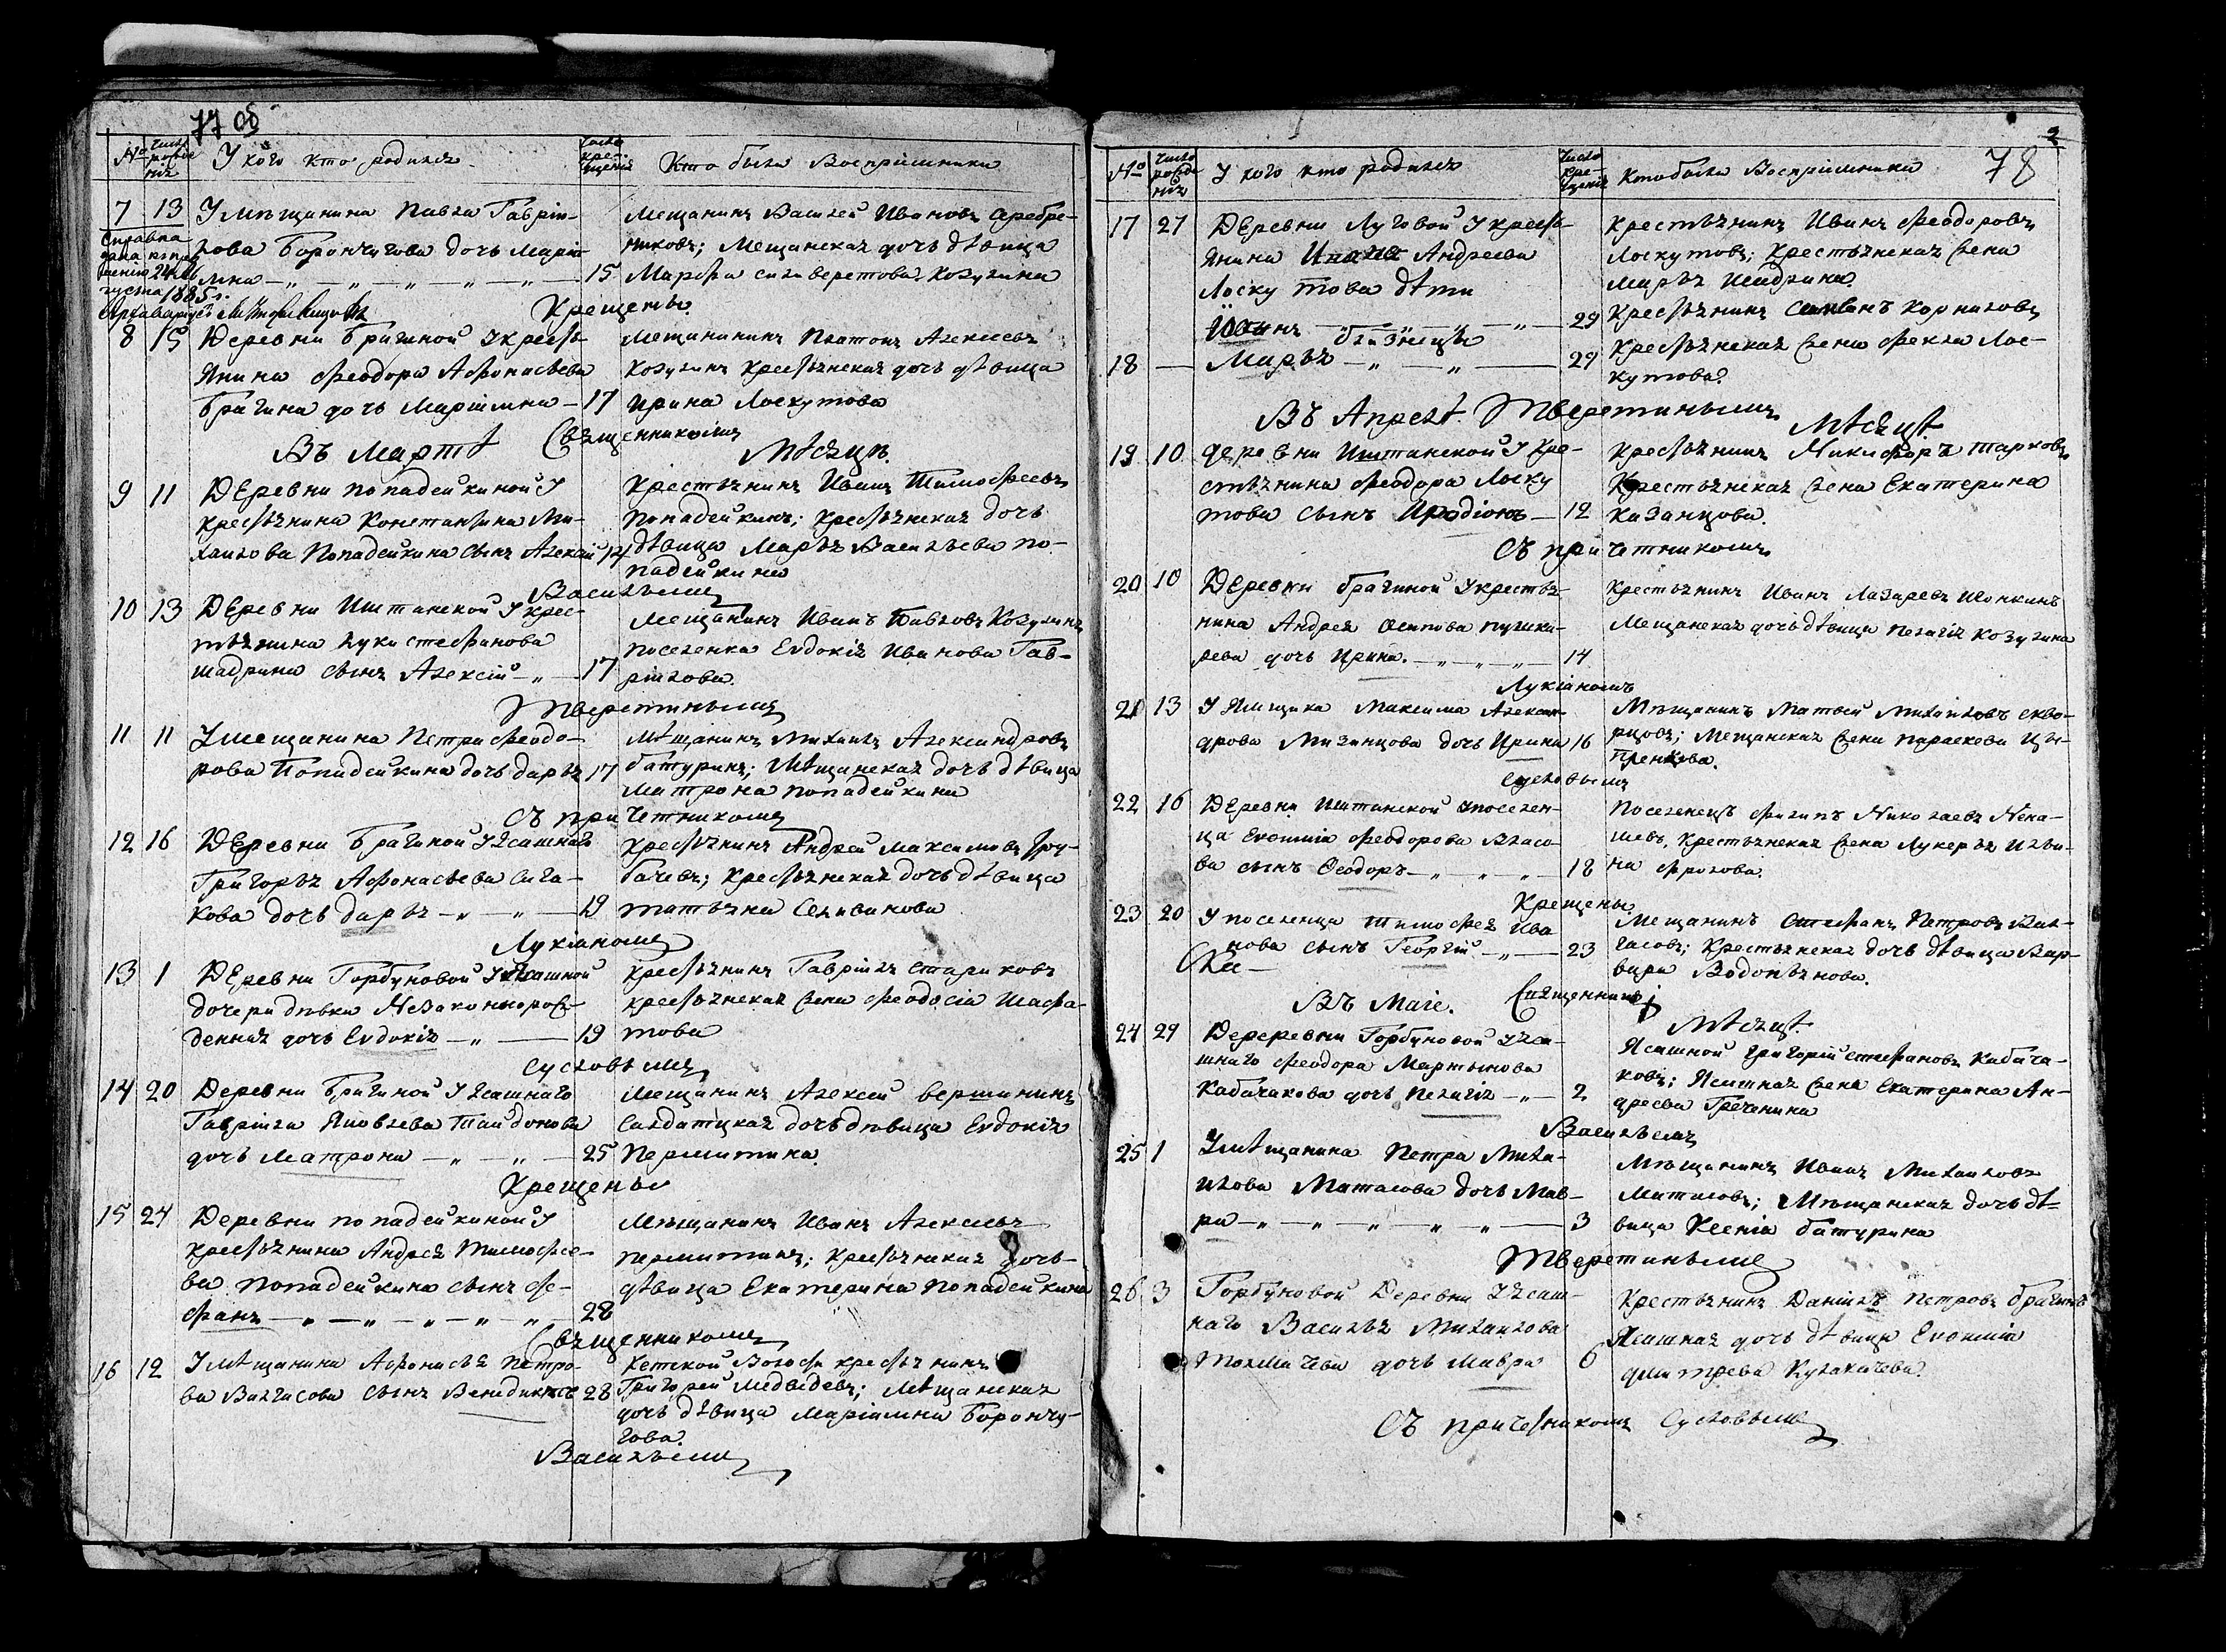 77 об
№ Число рождения У кого кто родился Число крещения Кто были Восприемники
7 13 У мѣщанина Павла Гаврі-
лова Борончугова дочь Маріа-
мна 15
Мещанинъ Василей Ивановъ Серебре-
никовъ; Мещанская дочь дѣвица
Марфа Козулина
Справка
дана
1885 г.
Крещены
8 15 Деревни Брагиной У кресть-
янина Феодора Афонасьева
Брагина дочь Маріамна 17
Мещанининъ Платонъ Алексеевъ
Козулинъ крестьянская дочь дѣвица
Ирина Лоскутова
Священникомъ
Въ Мартѣ Мѣсяцѣ.
9 11 Деревни Попадейкиной У
крестьянина Константина Ми-
хаилова Попадейкина сынъ Алексій 14
Крестьянинъ Иванъ Тимофеевъ
Попадейкинъ; крестьянская дочь
дѣвица Марья Васильева По-
падейкина
Васильемъ
10 13 Деревни Иштанской У крес-
тьянина Луки Стефанова
Шадрина сынъ Алексій 17
Мещанинъ Иванъ Павловъ Козулинъ
поселенка Евдокія Иванова Гав-
рилова.
Тверетинымъ
11 11 У мещанина Петра Феодо-
рова Попадейкина дочь Дарья 17
Мѣщанинъ Михаилъ Александровъ
Батуринъ; Мѣщанская дочь дѣвица
Матрона Попадейкина
Съ причетникомъ
12 16 Деревни Брагиной У Ясашнаго
Григорья Афонасьева Сига-
кова дочь Дарья 19
Крестьянинъ Андрей Максимовъ Гру-
бачевъ; крестьянская дочь дѣвица
Татьяна Селиванова
Лукіаномъ
13 1 Деревни Горбуновой У Ясашной
дочери дѣвки Незаконнорож-
денная дочь Евдокія 19
Крестьянинъ Гавріилъ Стариковъ
крестьянская жена Феодосія Шафа-
това
Сусловымъ
14 20 Деревни Брагиной У Ясашнаго
Гавріила Яковлева Тайдонова
дочь Матрона 25
Мещанинъ Алексей Вершининъ
Салдатцкая дочь дѣвица Евдокія
Пермитина.
Крещены
15 24 Деревни Попадейкиной У
крестьянина Андрея Тимофее-
ва Попадейкина сынъ Сте-
фанъ 28
Мѣщанинъ Иванъ Алексеевъ
Пермитинъ; крестьянская дочь
дѣвица Екатерина Попадейкина
Священникомъ
16 12 У мѣщанина Афонасья Петро-
ва Вялгасова сынъ Венедиктъ 28
Кетской Волости крестьянинъ
Григорей Медведевъ; Мѣщанская
дочь дѣвица Маріамна Борончу-
гова.
Васильемъ
2
78
№ Число рождения У кого кто родился Число крещения Кто были Восприемники
17 27 Деревни Луговой У кресть-
янина Андреева
Лоскутова дѣти
Иванъ 29
близнецы
18 Марья 29
Крестьянинъ Иванъ Феодоровъ
Лоскутовъ; Крестьянская жена
Марья Шадрина.
Крестьянинъ Корниловъ
Крестьянская жена Фекла Лос-
кутова.
Тверетинымъ
Въ Апрелѣ Мѣсяцѣ.
19 10 Деревни Иштанской У кре-
стьянина Феодора Лоску
това сынъ Иродіонъ 12
Крестьянинъ Никифоръ Тарковъ
Крестьянская жена Екатерина
Казанцова.
Съ причетникомъ
20 10 Деревни Брагиной У крестья-
нина Андрея Осипова Пушка-
рева дочь Ирина. 14
Крестьянинъ Иванъ Лазаревъ Шонкинъ
Мещанская дочь дѣвица Пелагія Козулина
Лукіаномъ
21 13 У Ямщика Максима Алексан-
дрова Мизинцова дочь Ирина 16
Мѣщанинъ Матвей Михаиловъ Скво-
рцовъ; Мещанская жена Параскева Цы-
Сусловымъ
22 16 Деревни Иштанской У поселен-
ца Евфимія Феодорова Власо-
ва сынъ Ѳеодоръ 18
Поселенецъ Филипъ Николаевъ Нена-
шевъ, Крестьянская жена Лукерья Ильи-
на Фролова.
Крещены
23 20 У поселенца Тимофея Ива
нова сынъ Георгій 23
Мещанинъ Стефанъ Петровъ Вял-
гасовъ; Крестьянская дочь дѣвица Вар-
вара Водопьянова.
Священникъ
Въ Маіе. Мѣсяцѣ.
24 29 Дереревни Горбуновой У Яса-
шнаго Феодора Мартынова
Кабачакова дочь Пелагія 2
Ясашной Григорій Стефановъ Кабача-
ковъ; Ясашная жена Екатерина Ан-
дреева Греченина
Васильемъ
25 1 У мѣщанина Петра Миха-
илова Матасова дочь Мав-
ра 3
Мѣщанинъ Иванъ Михаиловъ
Матасовъ; Мѣщанская дочь дѣ-
вица Ксенія Батурина
Тверетинымъ
26 3 Горбуновой Деревни У Ясаш-
наго Василья Михаилова
Толмачева дочь Мавра 6
Крестьянинъ Даніилъ Петровъ Брагинъ
Ясашная дочь дѣвица Евфимія
Дмитрева Кулакачева.
Съ причетникомъ Сусловымъ